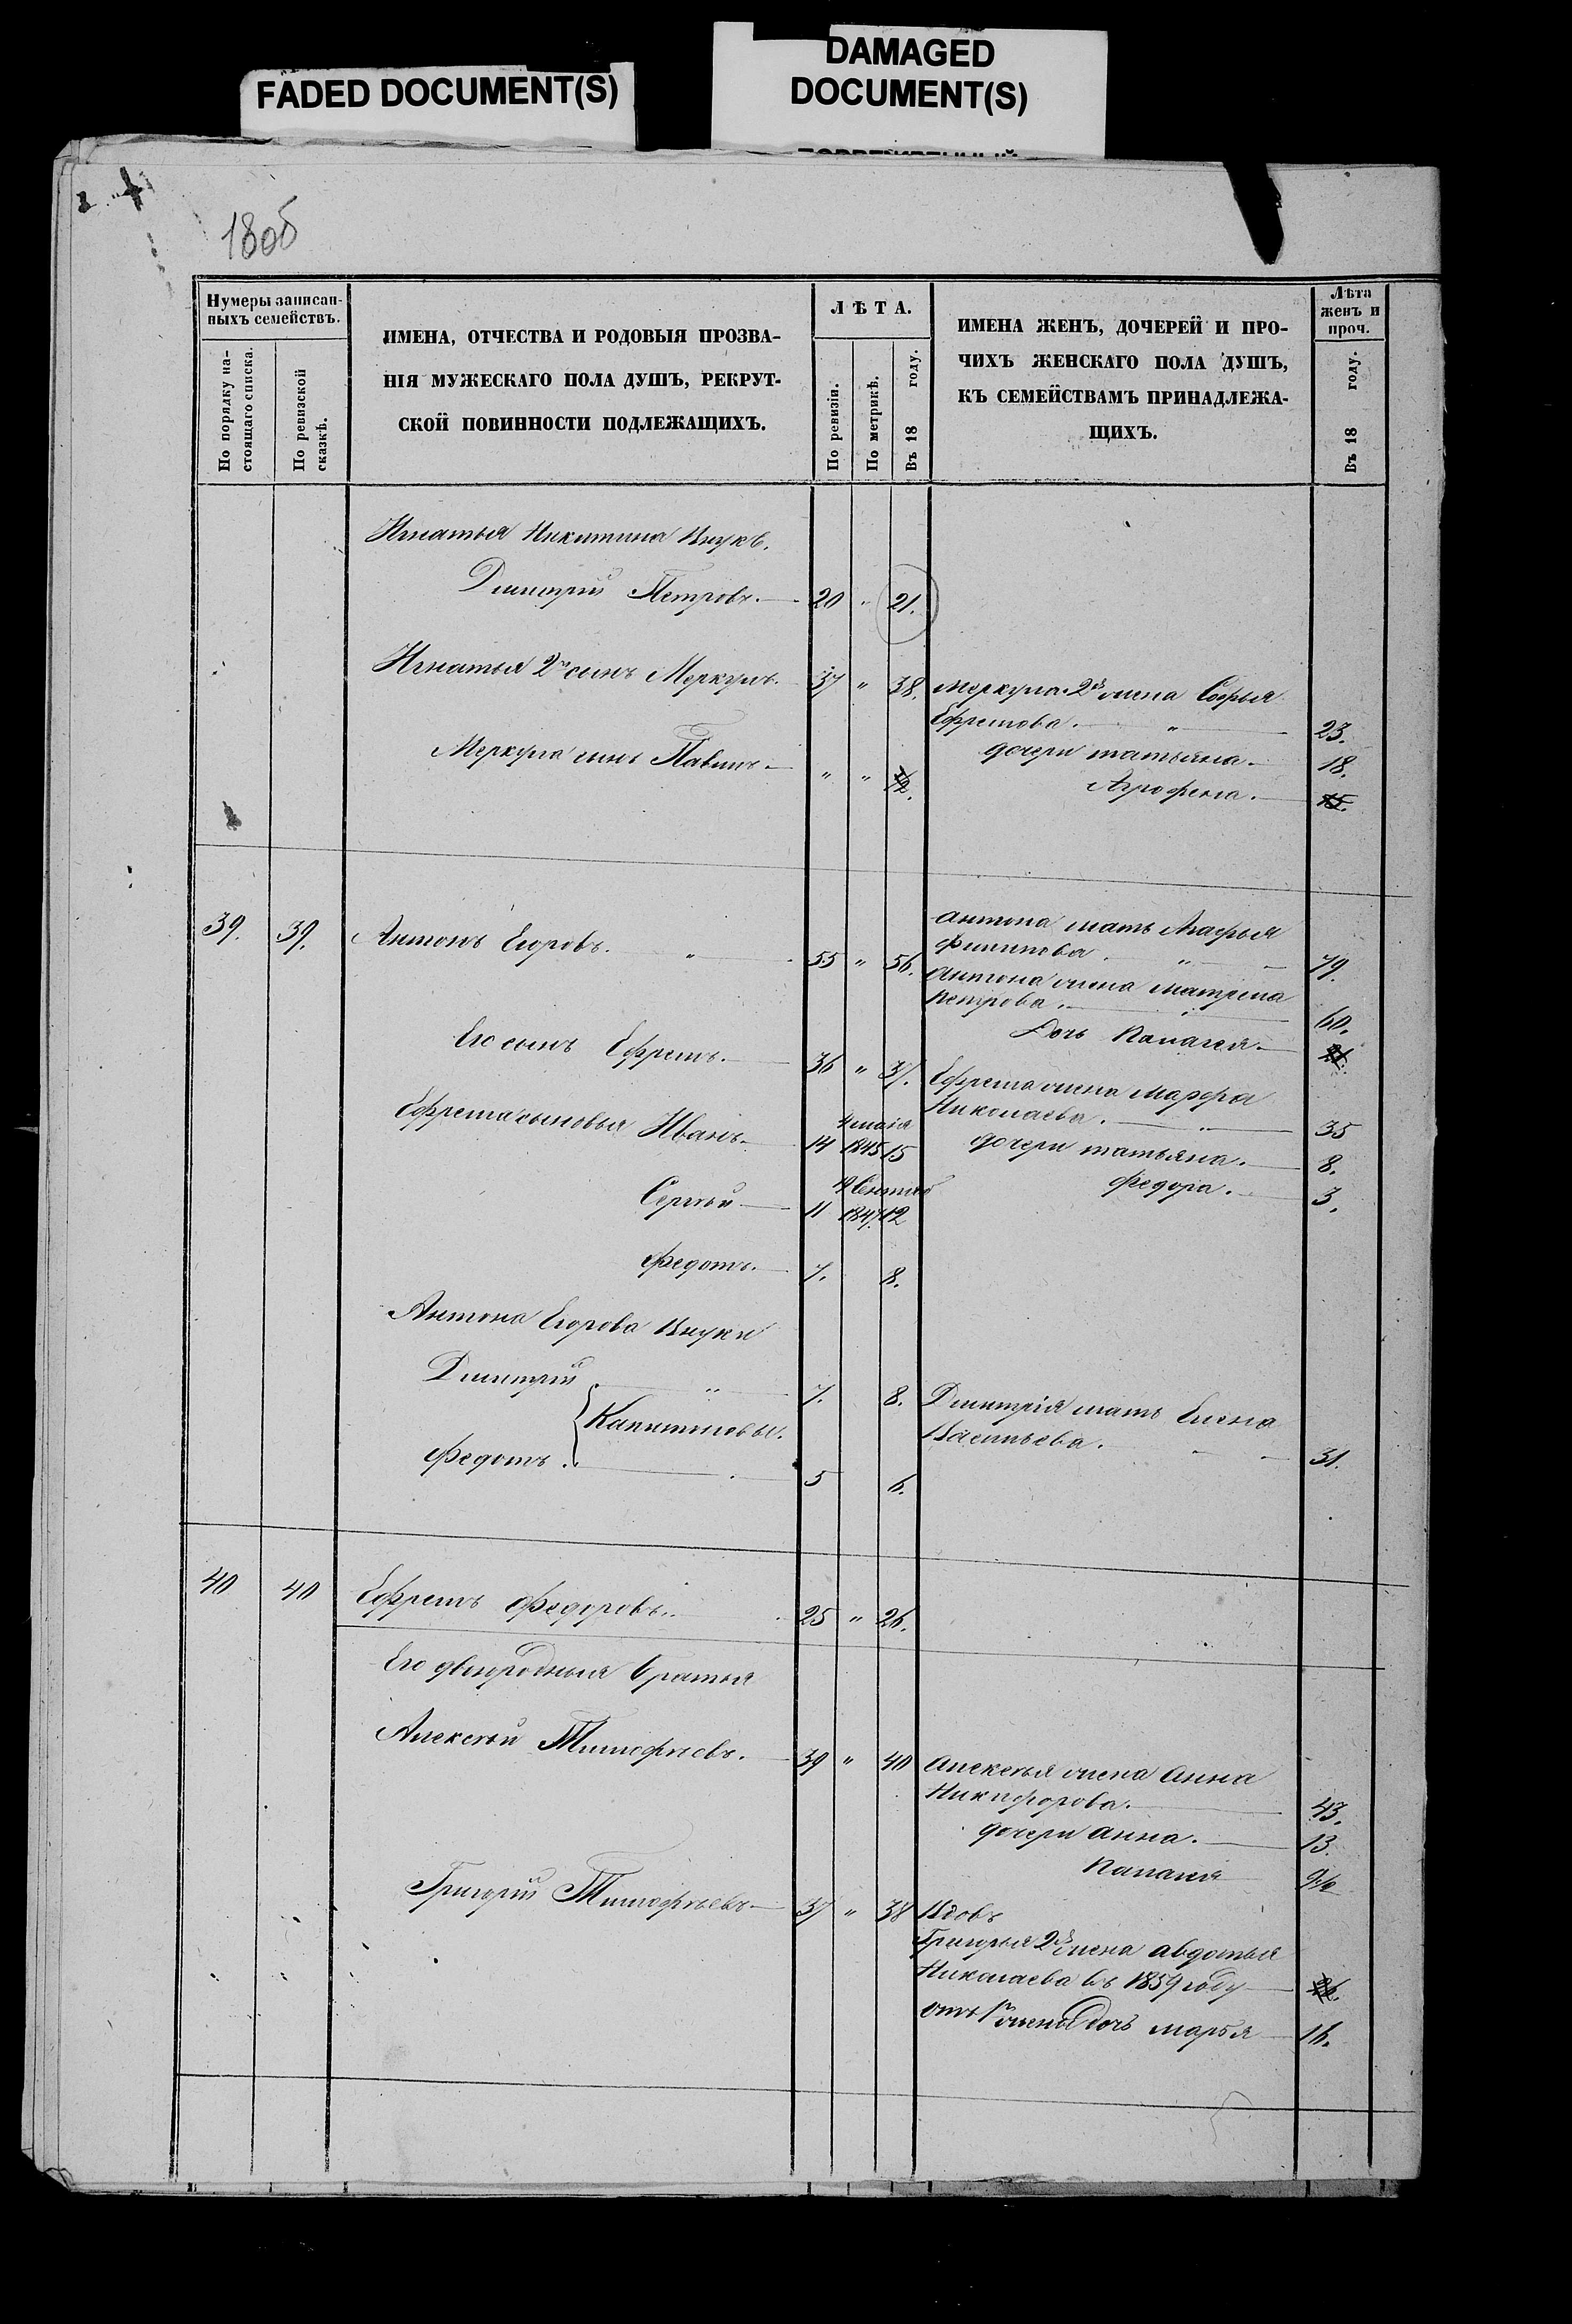 FADED DOCUMENT(S)
DAMAGED
DOCUMENT(S)
180б
Нумеры записан-
ныхъ семействъ.
По порядку на-
стоящаго списка.
По ревизской
сказкѣ.
ИМЕНА, ОТЧЕСТВА И РОДОВЫЯ ПРОЗВА-
НІЯ МУЖЕСКАГО ПОЛА ДУШЪ, РЕКРУТ-
СКОЙ ПОВИННОСТИ ПОДЛЕЖАЩИХЪ.
ЛѢТА.
По ревизіи.
По метрикѣ.
Въ 18 году.
ИМЕНА ЖЕНЪ, ДОЧЕРЕЙ И ПРО-
ЧИХЪ ЖЕНСКАГО ПОЛА ДУШЪ,
КЪ СЕМЕЙСТВАМЪ ПРИНАДЛЕЖА-
ЩИХЪ.
Лѣта
женъ и
проч.
Въ 18 году.
Игнатья Никитина Внукъ.
Дмитрій Петровъ. 20 " 21.
Игнатья 2й сынъ Меркулъ. 37 " 38.
Меркула 2я жена Софья
Ефремова. " 23.
Меркула сынъ Павелъ " "
дочери татьяна. 18.
Агрофена. 15.
39. 39. Антонъ Егоровъ. " 55 " 56.
Антона мать Агафья
Филипова. " 79.
Антона жена матрена
Петрова. " 60.
Дочь Палагея.
Его сынъ Ефремъ. 36 " 37.
Ефрема жена марфа
Николаева. " 35
Ефрема сыновья Иванъ. 14 4 маія 1845 15
дочери татьяна. 8.
Федора. 3.
Сергѣй 11 Сентяб 1847. 12
Федотъ. 7. 8.
Антона Егорова Внуки
Дмитрій " 7. 8.
Капитоновы.
Федотъ. 5 6.
Дмитрія мать Елена
Васильева. 31.
40 40 Ефремъ Федоровъ. 25 " 26.
Его двоюродныя братья
Алексѣй Тимофѣевъ. 39 " 40
Алексѣя жена Анна
Никифорова. 43.
дочери Анна. 13.
Палагея
Григорій Тимофѣевъ 37 " 38
Вдовъ
Григорья 2я жена авдотья
Николаева въ 1859 году
отъ 1й жены дочь марья 16.